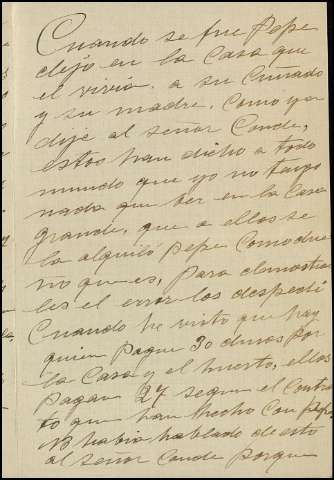 Cuando se fue Pepe
dejo en la casa que
el vivia a su Cuñado
y su madre. Como ya
dije al señor Conde,
estos han dicho a todo
mundo que yo no tengo
nada que ver en la Casa
grande, que a ellos se
la alquiló Pepe Como due
ño que es, para demostrar
les el error los despedi
Cuando he visto que hay
quien pague 30 duros por
la Casa y el huerto, ellos
pagan 27 segun el Contra
to que han hecho con Pepe
No habia hablado de esto
al señor Conde porque